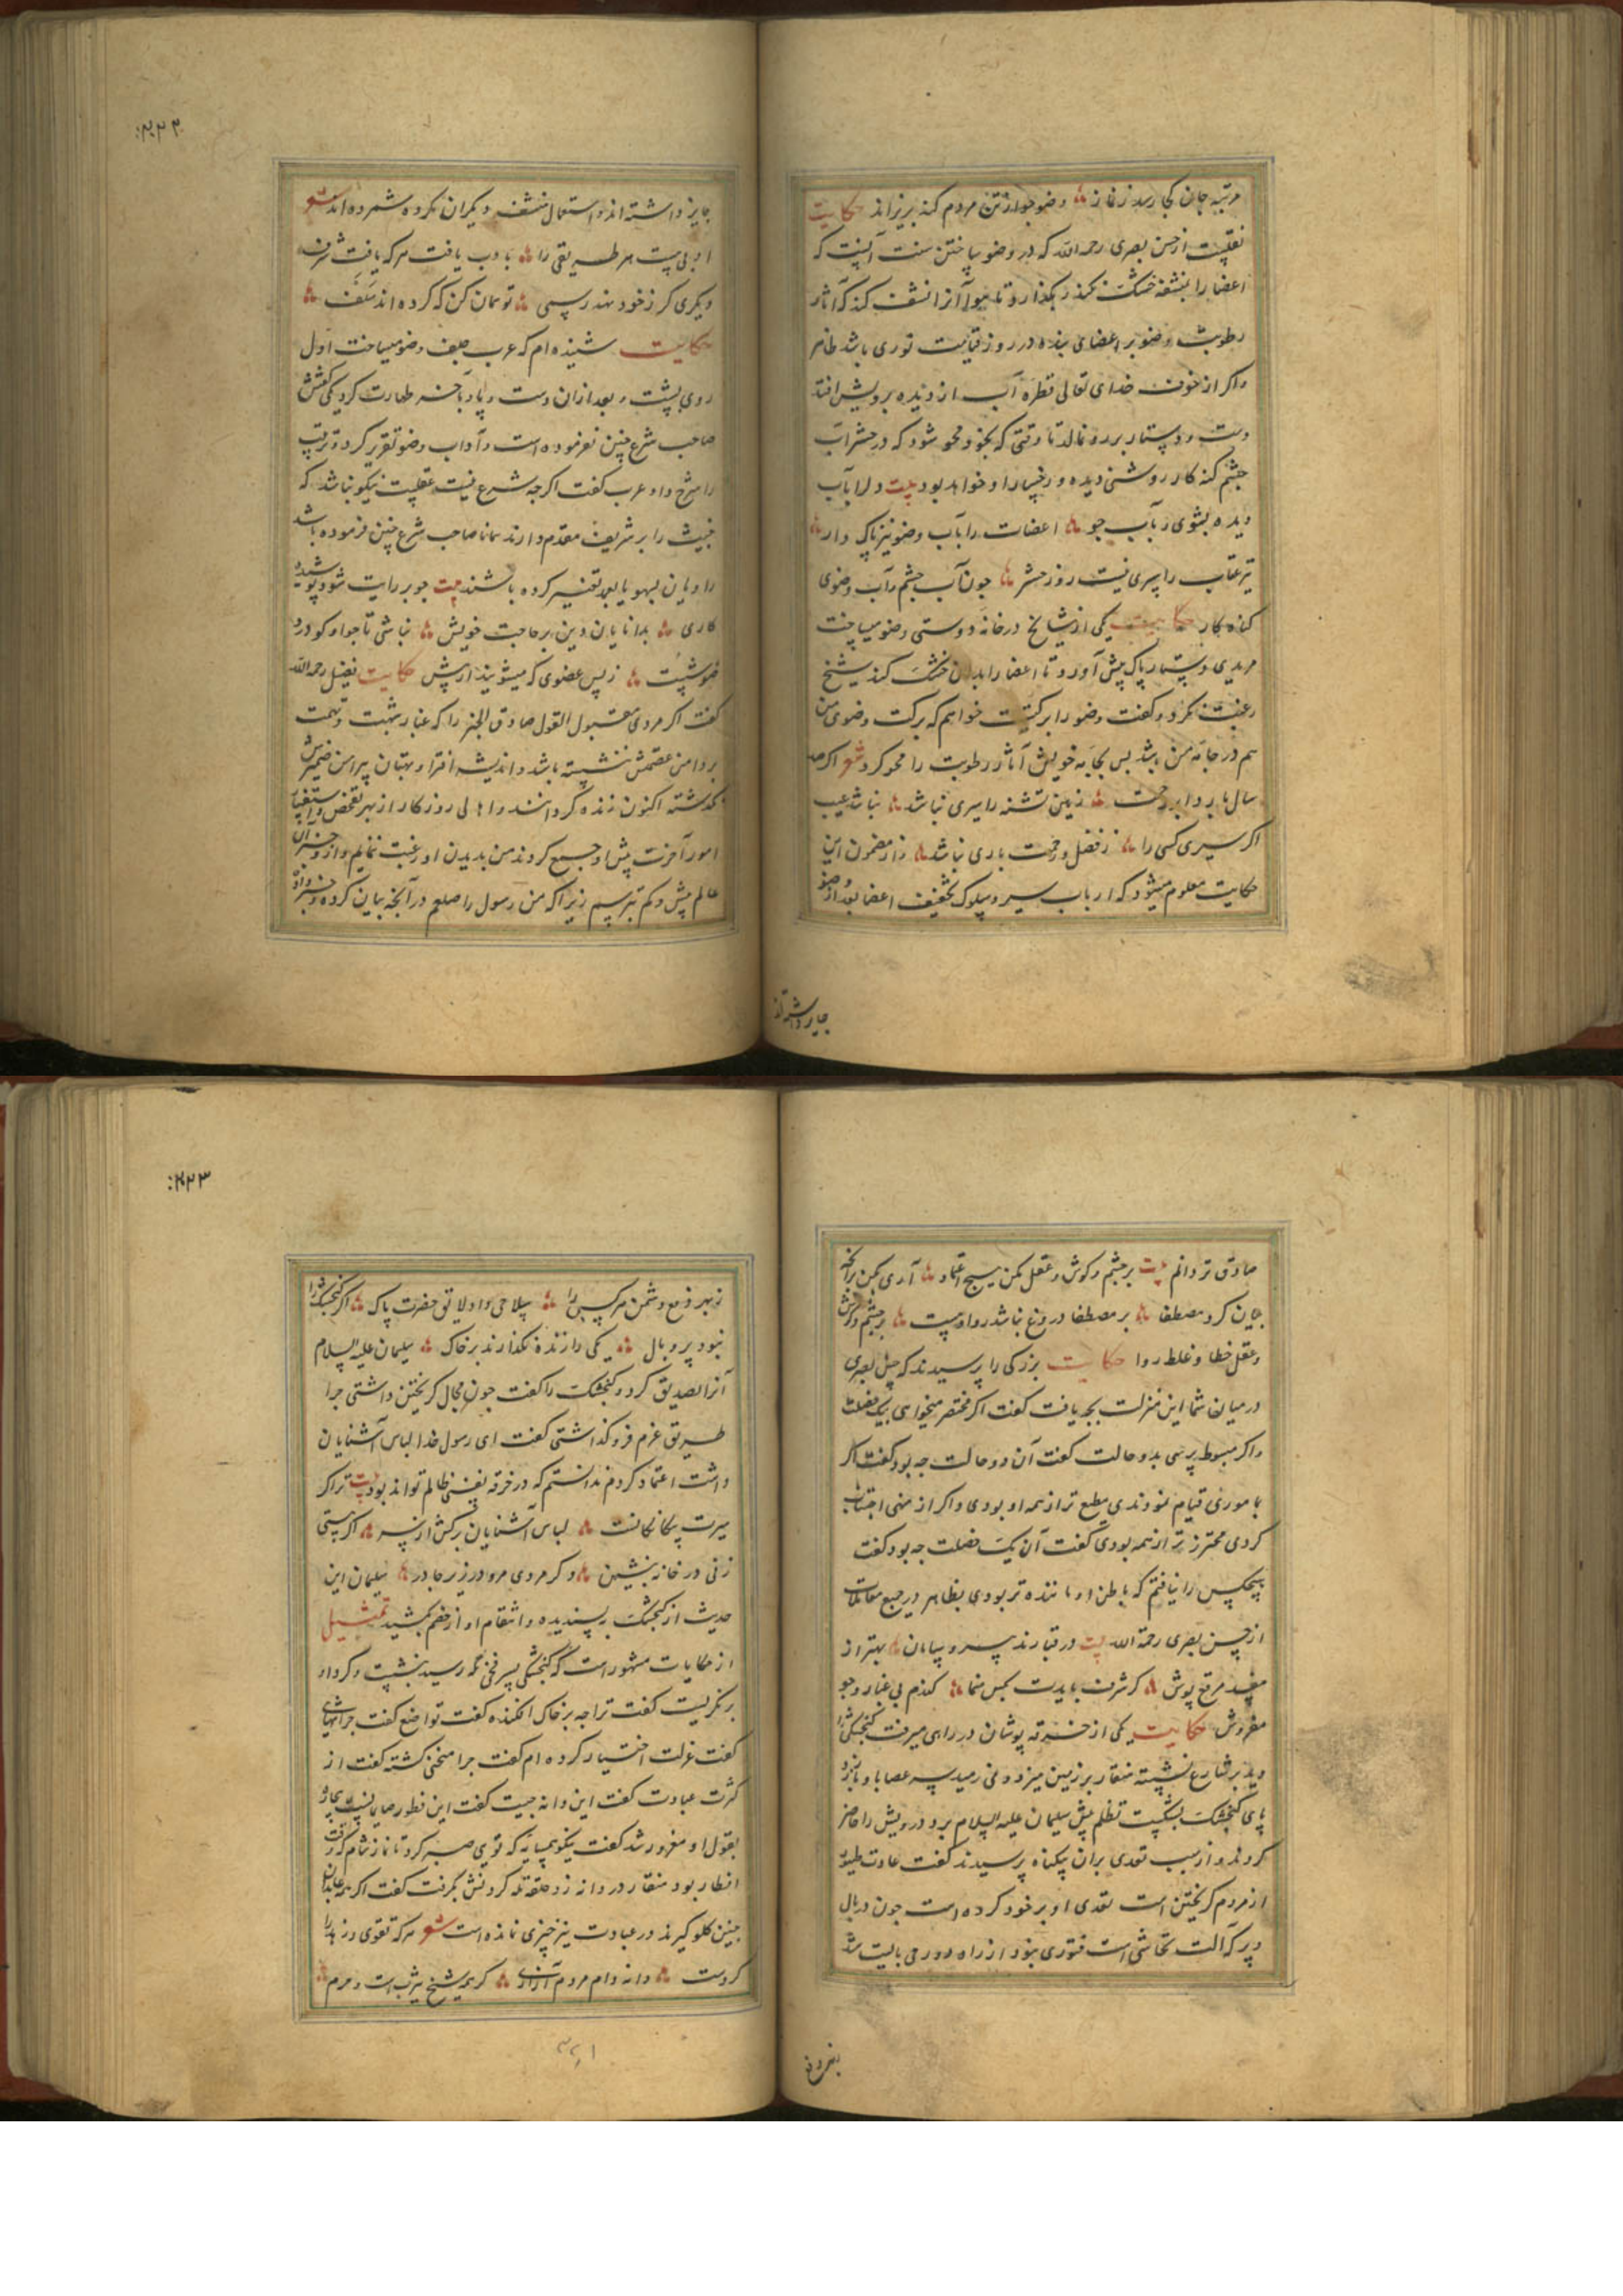 مرتبه جان کجا رسد ز نماز وضو جو از تن مردم کنه بریزاند حکایت
نقلیست از حسن بصری رحمه الله که در وضو ساختن سنت آنست که
اعضا را بنشفه خشک نکند بگذارد تا هوا آنرا نشف کند که آثار
رطوبت وضو بر اعضای بنده در روز قیامت نوری باشد ظاهر
واکر از خوف خدای تعالی قطره آب از دیده برویش افتد
دست و دستار برو نمالد تا وقتی که بخود محو شود که در حشر آب
چشم کنه کار روشنی دیده و رخسار او خواهد بود بیت دل را بآب
دیده بشوی و بآب جو اعضات را بآب وضو نیز پاک دار
تیر عقاب را سپری نیست روز حشر جون آب چشم و آب وضوی
کناه کار حکایت یکی از مشایخ در خانه دوستی وضو میساخت
مریدی دستار پاک پیش آورد تا اعضا را بدان خشک کند شیخ
رغبت نکرد و کفت وضو را برکتست خواهم که برکت وضوی من
هم در جامه من باشد پس بجامه خویش آثار رطوبت را محو کرد شعر اکر صد
سال بارد ابر رحمت زمین تشنه را سیری نباشد نباشد عیب
اکر سیری کسی را ز فضل و رحمت باری نباشد و از مضمون این
حکایت معلوم میشود که ارباب سیر و سلوک تخفیف اعضا بعد از وضو
جایز داشته اند
۲۲۲
جایز داشته اند و استعمال منشفه دیکران مکروه شمرده اند شعر
ادبی هست هر طریقی را با ادب یافت هر که یافت شرف
دیکری کر ز خود نهد رسمی تو همان کن که کرده اند سلف
حکایت شنیده ام که عرب جلف وضو میساخت اول
روی بشست و بعد از آن دست و پا و بآخر طهارت کرد یکی کفتش
صاحب شرع چنین نفرموده است و آداب وضو تقریر کرد و ترتیب
را شرح داد عرب کفت اکرچه شرع نیست عقلیست نیکو نباشد که
خبیث را بر شریف مقدم دارند همانا صاحب شرع چنین فرموده باشد
راویان بسهو یا بعمد تغییر کرده باشند بیت جو بر رایت شود پوشیده
کاری بدانایان دین بر حاجت خویش نباشی تا جو او کو در
وضو شست ز پس عضوی که میشویند از پیش حکایت فضیل رحمه الله
کفت اکر مردی مقبول القول صادق الخبر را که غبار شبهت و تهمت
بر دامن عصمتش ننشسته باشد و اندیشه افترا و بهتان پیرامن ضمیرش
نکذشته اکنون زنده کردانند و اهالی روزکار از بهر تفحص و استخبار
امور آخرت پیش او جمع کردند من بدیدن او رغبت ننمایم و از و خبر آن
عالم بیش و کم نپرسیم زیرا که من رسول را صلعم در آنچه بیان کرده و خبر داده
صادق تر دانم بیت بر چشم و کوش و عقل مکن هیچ اعتماد آری مکن بر آنچه
بیان کرد مصطفا بر مصطفا دروغ نباشد روا و هست بر چشم و کوش
و عقل خطا و غلط روا حکایت بزرکی را پرسیدند که حسن بصری
در میان شما این منزلت بچه یافت کفت اکر مختصر میخواهی بیک خصلت
واکر مبسوط پرسی بدو حالت کفت آن دو حالت جه بود کفت اکر
باموری قیام نمودندی مطیع تر از همه او بودی و اکر از منهی اجتناب
کردی محترز تر از همه بودی کفت آن یک خصلت جه بود کفت
هیچکس را نیافتم که باطن او ماننده تر بودی بظاهر در جمیع معاملات
از حسن بصری رحمة الله بیت در قبا رند بی سر و سامان بهتر از
مفسد مرقع پوش کر شرف بایدت بجس منما کندم بی غبار و جو
مفروش حکایت یکی از خرقه پوشان در راهی میرفت کنجشکی را
دید بر شارع نشسته منقار بر زمین میزد و نمی رمید بسر عصا با و باز زد
پای کنجشک بشکست تظلم پیش سلیمان علیه السلام برد درویش را حاضر
کردند و از سبب تعدی بر آن بیکناه پرسیدند کفت عادت طیور
از مردم کریختن است تعدی او بر خود کرده است جون در بال
و پر که آلت تحاشی است فتوری نبود از راه دور می بایست شد
۲۲۳
ز بهر دفع دشمن هر کسی را سلاحی داد لایق حضرت پاک اکر کنجشک را
نبود پر و بال یکی را زنده نکذارند بر خاک سلیمان علیه السلام
آنرا تصدیق کرد و کنجشک را کفت جون مجال کریختن داشتی جرا
طریق عزم فرو کذاشتی کفت ای رسول خدا لباس آشنایان
داشت اعتماد کردم ندانستم که در خرقه نفسی ظالم تواند بود بیت ترا کر
سیرت بیکانکانست لباس آشنایان برکش از سر اکر هستی
زنی در خانه بنشین و کر مردی مرو در زیر چادر سلیمان این
حدیث از کنجشک بپسندیده و انتقام او از خصم بکشید تمثیل
از حکایات مشهور است که کنجشکی بسر فخی رسید بنشست و کرد او
بر نکریست کفت ترا جه بر خاک افکنده کفت تواضع کفت جرا تنهایی
کفت عزلت اختیار کرده ام کفت جرا منحنی کشته کفت از
کثرت عبادت کفت این دانه جیست کفت این فطور صایمانست بیچاره
بقول او مغرور شد کفت نیکو همسایه که توی صبر کرد تا نماز شام که وقت
افطار بود منقار در دانه زد حلقه تله کردنش بکرفت کفت اکر همه عابدان
چنین کلو کیرند در عبادت نیز خیزی نمانده است شعر هر که تقوی و زهد را
کردست دانه دام مردم آزاری کر همه شیخ یثرب است و حرم